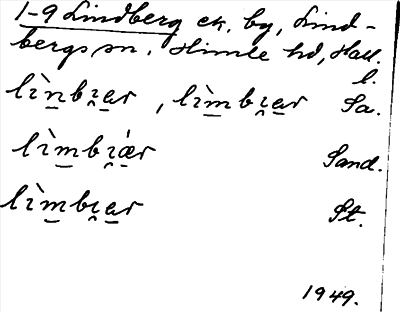 1-9 Lindberg ek. by, Lind-
bergs sn. Himle hd, Hall.
l.
lìn̲bı̯a̲r , lìm̲bı̯a̲r Sa.
lìm̲bı̯á̲r Sand.
lìm̲bı̯a̲r St.
1949.